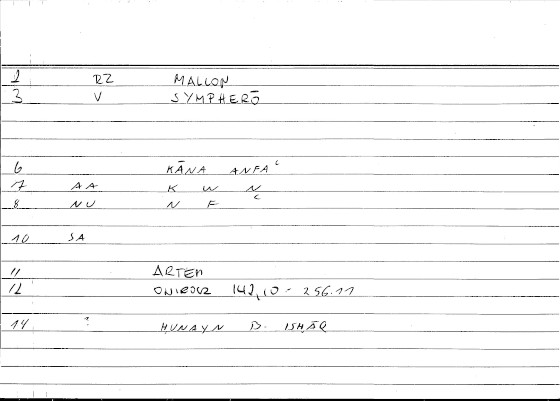 1 RZ MALLON
3 V SYMPHERŌ
6 KĀNA ANFAʿ
7 AA K W N
8 NU N F ʿ
10 SA
11 ARTEM
12 ONIROCR 142,10 - 256.11
14 : HUNAYN B. ISHĀQ